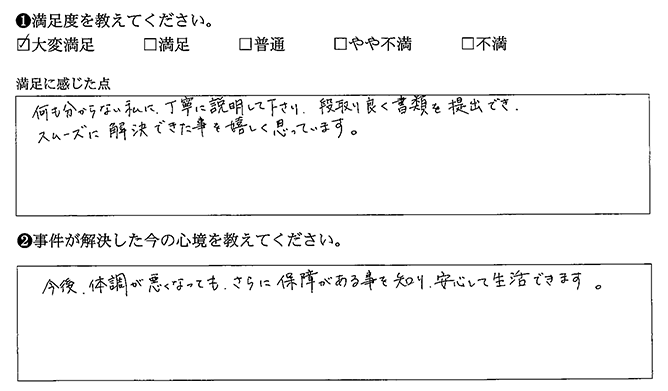 ❶満足度を教えてください。
☑大変満足 □満足 □普通 □やや不満 □不満
満足に感じた点
何も分からない私に、丁寧に説明して下さり、段取り良く書類を提出でき、
スムーズに解決できた事を嬉しく思っています。
❷事件が解決した今の心境を教えてください。
今後、体調が悪くなっても、さらに保障がある事を知り、安心して生活できます。